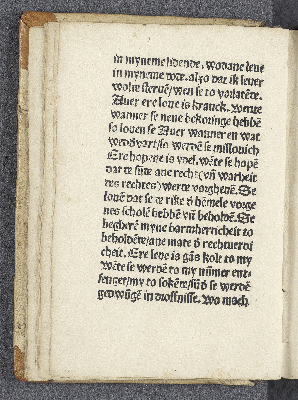 in myneme lidende. wodane leue
in myneme dode. also dat ik leuer
wolde steruē/ wen se to vorlatēde.
Auer ere loue is kranck. Wente
wanner se nene bekoringe hebbē
so louen se Auer wanner en wat
wedd̓vart/ so werdē se mislouich
Ere hopene is ydel. wēte se hapē
dat te sūte ane recht vn̄ warheit
des rechtes) werde vorgheuē. Se
louē dat se te rike d̓ hēmele vorge
nes scholē hebbē vn̄ beholdē. Se
begherē myne barmherticheit to
beholdēte/ane mate d̓ rechtuerdi
cheit. Ere leue is gās kolt to my
Wēte se werdē to my nūmer ent-
fenget/my to sokēte/sūd̓ se werdē
gedwūgē in droffnisse. Wo mach